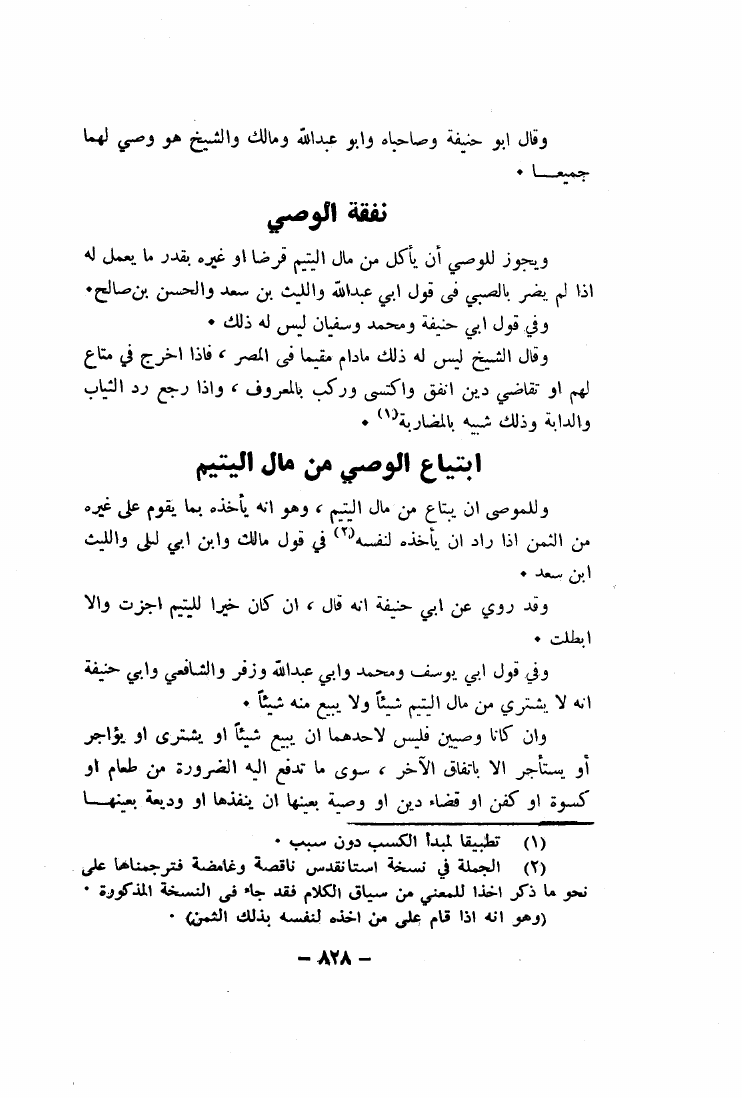 وقال ابو حنيفة وصاحباه وابو عبدالله ومالك والشيخ هو وصي لهما
جميعـــا •
نفقة الوصي
ويجوز للوصي أن يأكل من مال اليتيم قرضا او غيره بقدر ما يعمل له
اذا لم يضر بالصبي فى قول ابي عبدالله والليث بن سعد والحسن بن صالح•
وفي قول ابي حنيفة ومحمد وسفيان ليس له ذلك •
وقال الشيخ ليس له ذلك مادام مقيما فى المصر ، فاذا اخرج في متاع
لهم او تقاضي دين انفق واكتسى وركب بالمعروف ، واذا رجع رد الثياب
والدابة وذلك شبيه بالمضاربة(١) •
ابتياع الوصي من مال اليتيم
وللموصى ان يبتاع من مال اليتيم ، وهو انه يأخذه بما يقوم على غيره
من الثمن اذا راد ان يأخذه لنفسه(٢) في قول مالك وابن ابي ليلى والليث
ابن سعد •
وقد روي عن ابي حنيفة انه قال ، ان كان خيرا لليتيم اجزت والا
ابطلت •
وفي قول ابي يوسف ومحمد وابي عبدالله وزفر والشافعي وابي حنيفة
انه لا يشتري من مال اليتيم شيئاً ولا يبيع منه شيئاً •
وان كانا وصيين فليس لاحدهما ان يبيع شيئاً او يشترى او يؤاجر
أو يستأجر الا باتفاق الآخر ، سوى ما تدفع اليه الضرورة من طعام او
كسوة او كفن او قضاء دين او وصية بعينها ان ينفذها او وديعة بعينهـــا
(١) تطبيقا لمبدأ الكسب دون سبب •
(٢) الجملة في نسخة استانقدس ناقصة وغامضة فترجمناها على
نحو ما ذكر اخذا للمعني من سياق الكلام فقد جاء فى النسخة المذكورة •
(وهو انه اذا قام على من اخذه لنفسه بذلك الثمن) •
— ٨٢٨ —